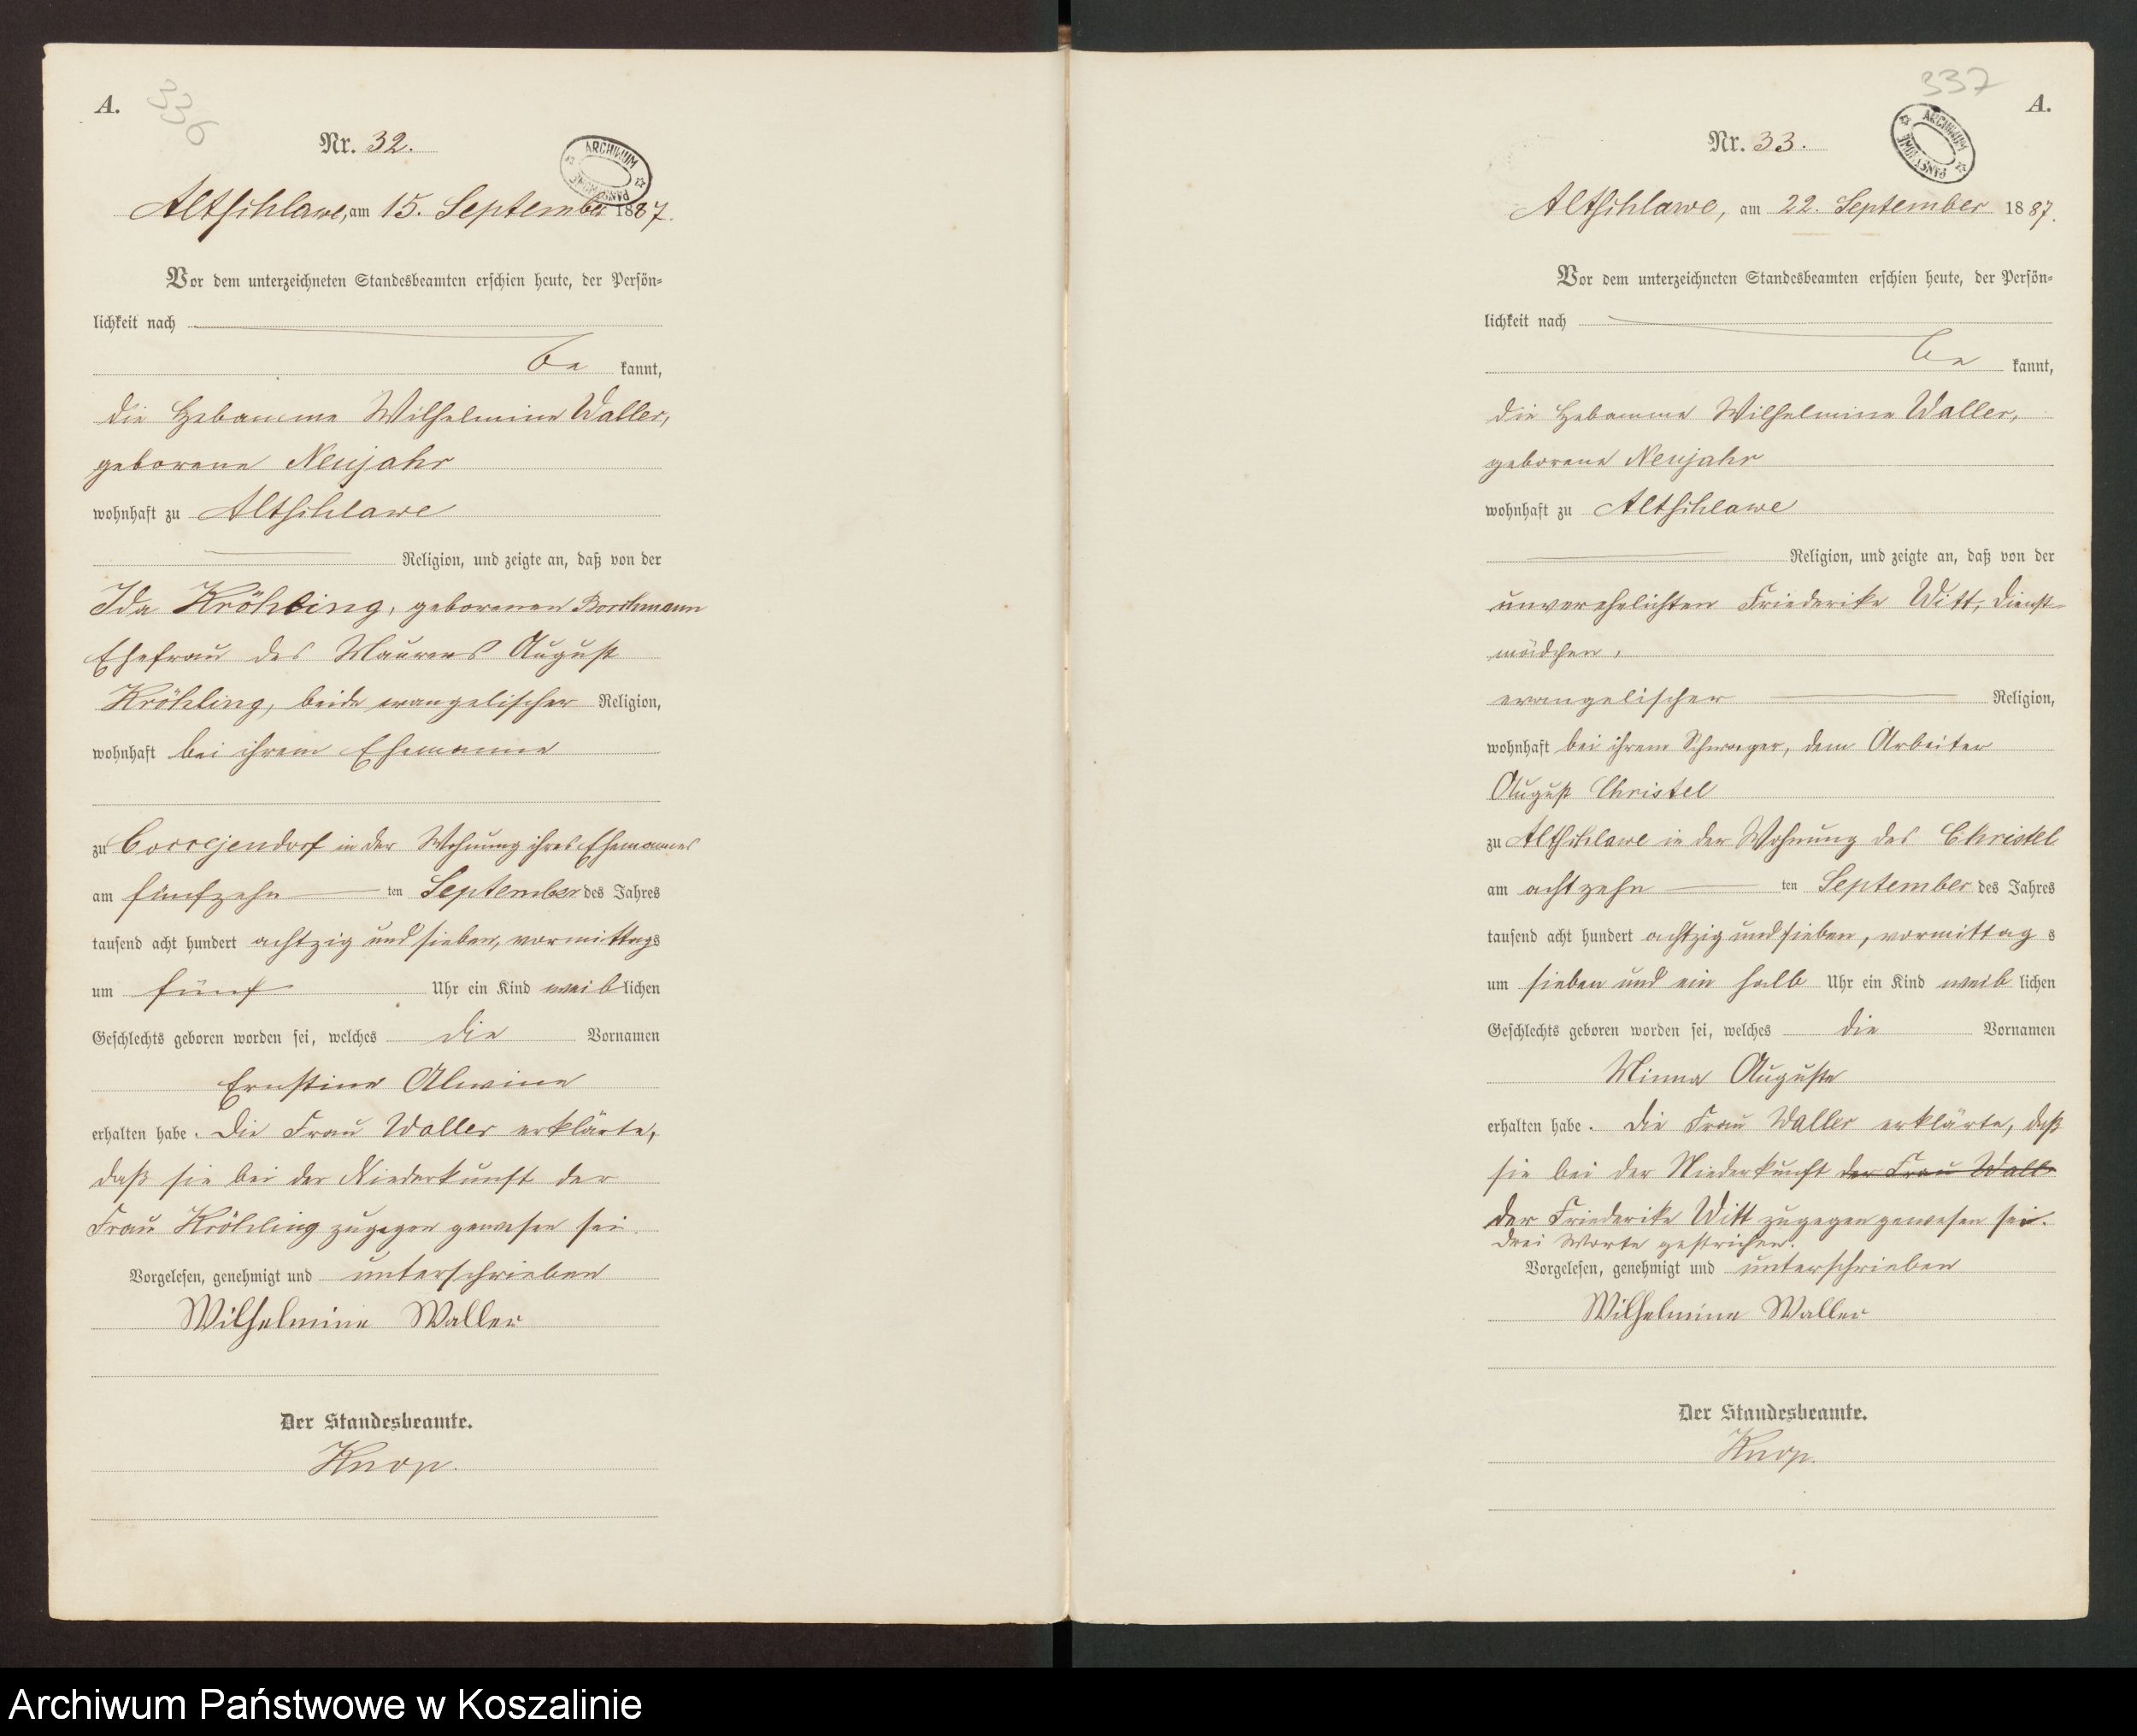 A.
336
Nr. 32.
ARCHIWUM PAŃSTWOWE
Altschlawe, am 15. September 1887.
Vor dem unterzeichneten Standesbeamten erschien heute, der Persön-
lichkeit nach
be kannt,
die Hebamme Wilhelmine Waller,
geborene Neujahr
wohnhaft zu Altschlawe
Religion, und zeigte an, daß von der
Ida Kröhling, geborenen Borchmann
Ehefrau des Maurers August
Kröhling, beide evangelischer Religion,
wohnhaft bei ihrem Ehemanne
zu Coccejendorf in der Wohnung ihres Ehemannes
am fünfzehn ten September des Jahres
tausend acht hundert achtzig und sieben, vormittags
um fünf Uhr ein Kind weiblichen
Geschlechts geboren worden sei, welches die Vornamen
Ernstine Alwine
erhalten habe. Die Frau Waller erklärte,
daß sie bei der Niederkunft der
Frau Kröhling zugegen gewesen sei.
Vorgelesen, genehmigt und unterschrieben
Wilhelmine Waller
Der Standesbeamte.
Knop.
337
A.
Nr. 33.
ARCHIWUM PAŃSTWOWE
Altschlawe, am 22. September 1887.
Vor dem unterzeichneten Standesbeamten erschien heute, der Persön-
lichkeit nach
be kannt,
die Hebamme Wilhelmine Waller,
geborene Neujahr
wohnhaft zu Altschlawe
Religion, und zeigte an, daß von der
unverehelichten Friederike Witt, Dienst-
mädchen,
evangelischer Religion,
wohnhaft bei ihrem Schwager, dem Arbeiter
August Christel
zu Altschlawe in der Wohnung des Christel
am achtzehn ten September des Jahres
tausend acht hundert achtzig und sieben, vormittag s
um sieben und ein halb Uhr ein Kind weib lichen
Geschlechts geboren worden sei, welches die Vornamen
Minna Auguste
erhalten habe. Die Frau Waller erklärte, daß
sie bei der Niederkunft der Frau Wall
der Friederike Witt zugegen gewesen sei.
Drei Worte gestrichen.
Vorgelesen, genehmigt und unterschrieben
Wilhelmine Waller
Der Standesbeamte.
Knop.
Archiwum Państwowe w Koszalinie